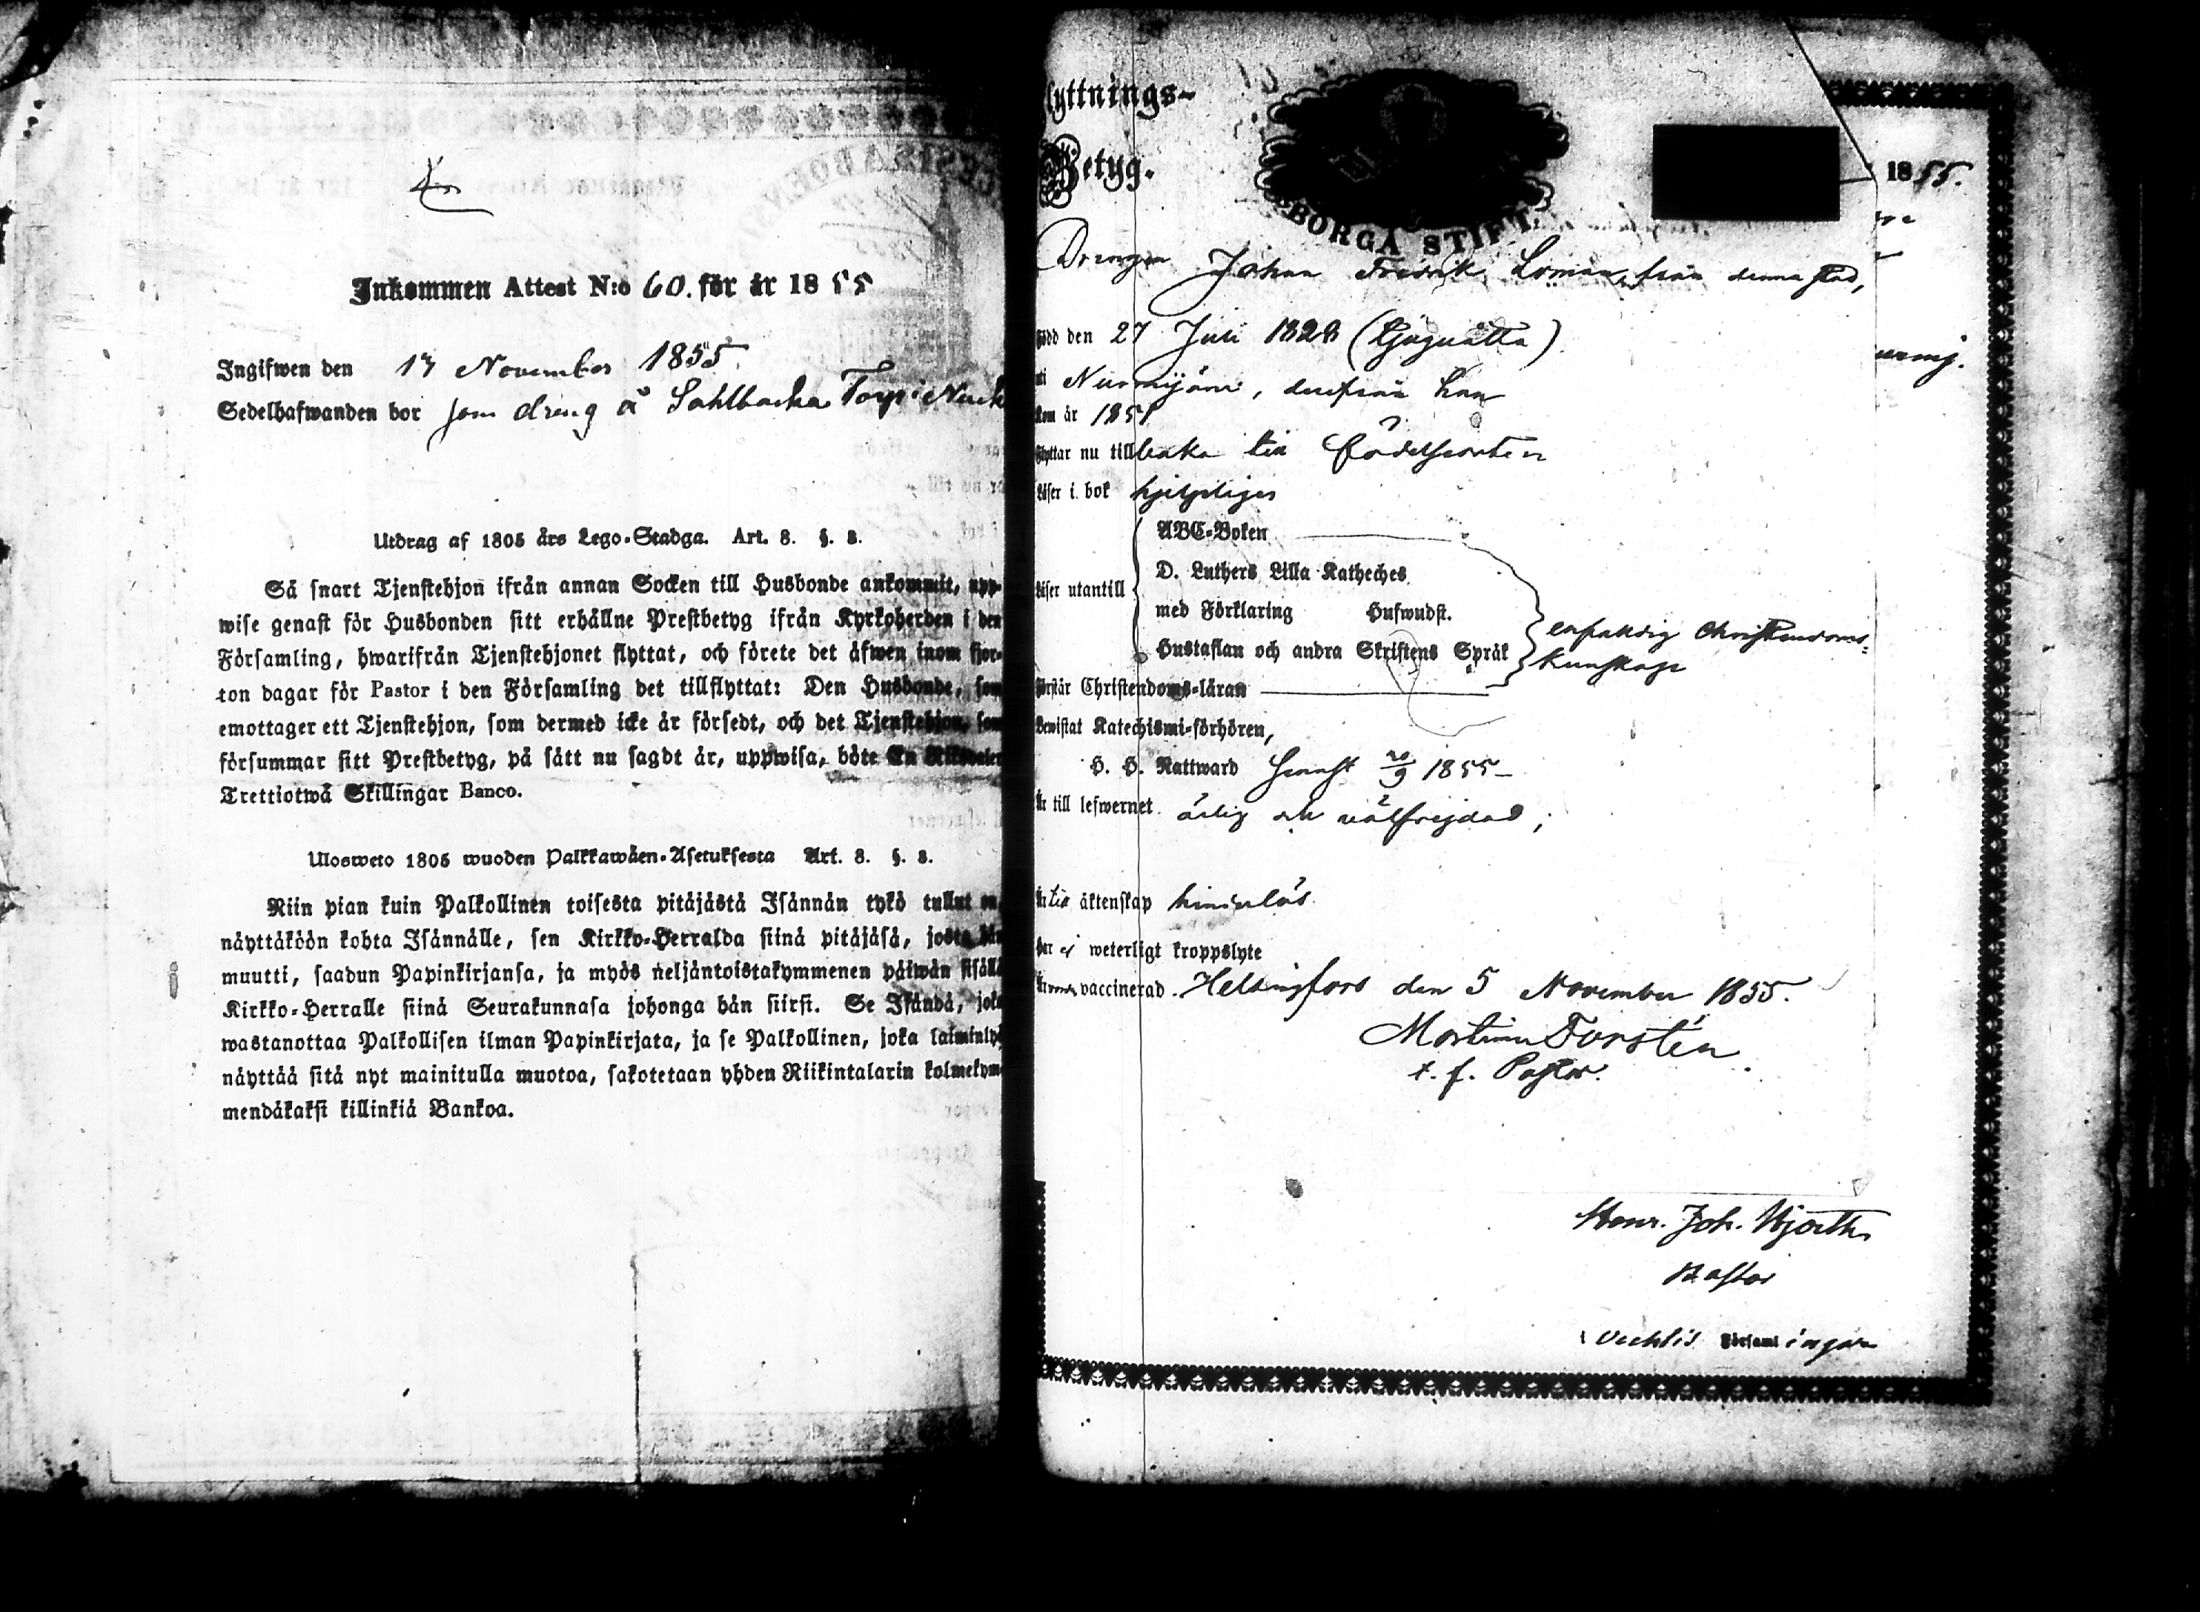 Inkommen Attest N:o 60. för år 1855
Ingifwen den 17 November 1855.
Sedelhafwanden bor som dreng å Sahlbacka Torp i
Utdrag af 1805 års Lego-Stadga. Art. 8. §. 8.
Så snart Tjenstehjon ifrån annan Socken till Husbonde ankommit, upp-
wise genast för Husbonden sitt erhållne Prestbetyg ifrån Kyrkoherden i den
Församling, hwarifrån Tjenstehjonet flyttat, och förete det äfwen inom fjor-
ton dagar för Pastor i den Församling det tillflyttat: Den Husbonde, som
emottager ett Tjenstehjon, som dermed icke är försedt, och det Tjenstehjon, som
försummar sitt Prestbetyg, på sätt nu sagdt är, uppwisa, böte En Riksdaler
Trettiotwå Skillingar Banco.
Ulosweto 1805 wuoden Palkkawäen-Asetuksesta Art. 8. §. 8.
Niin pian kuin Palkollinen toisesta pitäjästä Isännän tykö tullut on,
näyttäköön kohta Isännälle, sen Kirkko-Herralda siinä pitäjäsä, josta hän
muutti, saadun Papinkirjansa, ja myös neljäntoistakymmenen päiwän sisällä
Kirkko-Herralle siinä Seurakunnasa johonga hän siirsi. Se Isändä, joka
wastanottaa Palkollisen ilman Papinkirjata, ja se Palkollinen, joka laiminlyö
näyttää sitä nyt mainitulla muotoa, sakotetaan yhden Riikintalarin kolmekym-
mendäkaksi killinkiä Bankoa.
lyttnings-
Betyg.
BORGÅ STIFT.
1855.
Drengen Johan Fredrik Loman, från denna stad,
född den 27 Juli 1828
i Nurmijärvi, derifrån han
kom år 1851
flyttar nu tillbaka till födelseorten
Läser i bok hjelpligen
ABC-Boken
D. Luthers Lilla Katheches
Läser utantill
med Förklaring Hufwudst.
Hustaflan och andra Skriftens Språk
enfaldig Christendoms-
kunskap
Förstår Christendoms-läran
Bewistat Katechismi-förhören,
H. H. Nattward senast 20/9 1855
Är till lefwernet ärlig och välfrejdad,
Är till äktenskap hinderlös
Har ej weterligt kroppslyte
Är vaccinerad. Helsingfors den 5 November 1855.
Forstén
t. f. Pastor.
Henr. Joh. Hjorth
Pastor
i Församlingar